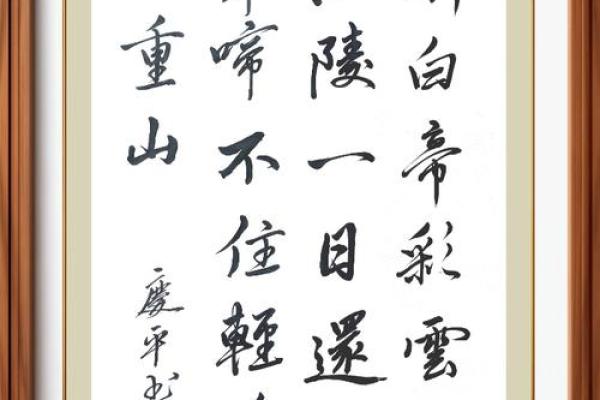 白帝彩雲
陵一目還
啼不住輕
重山
慶平书